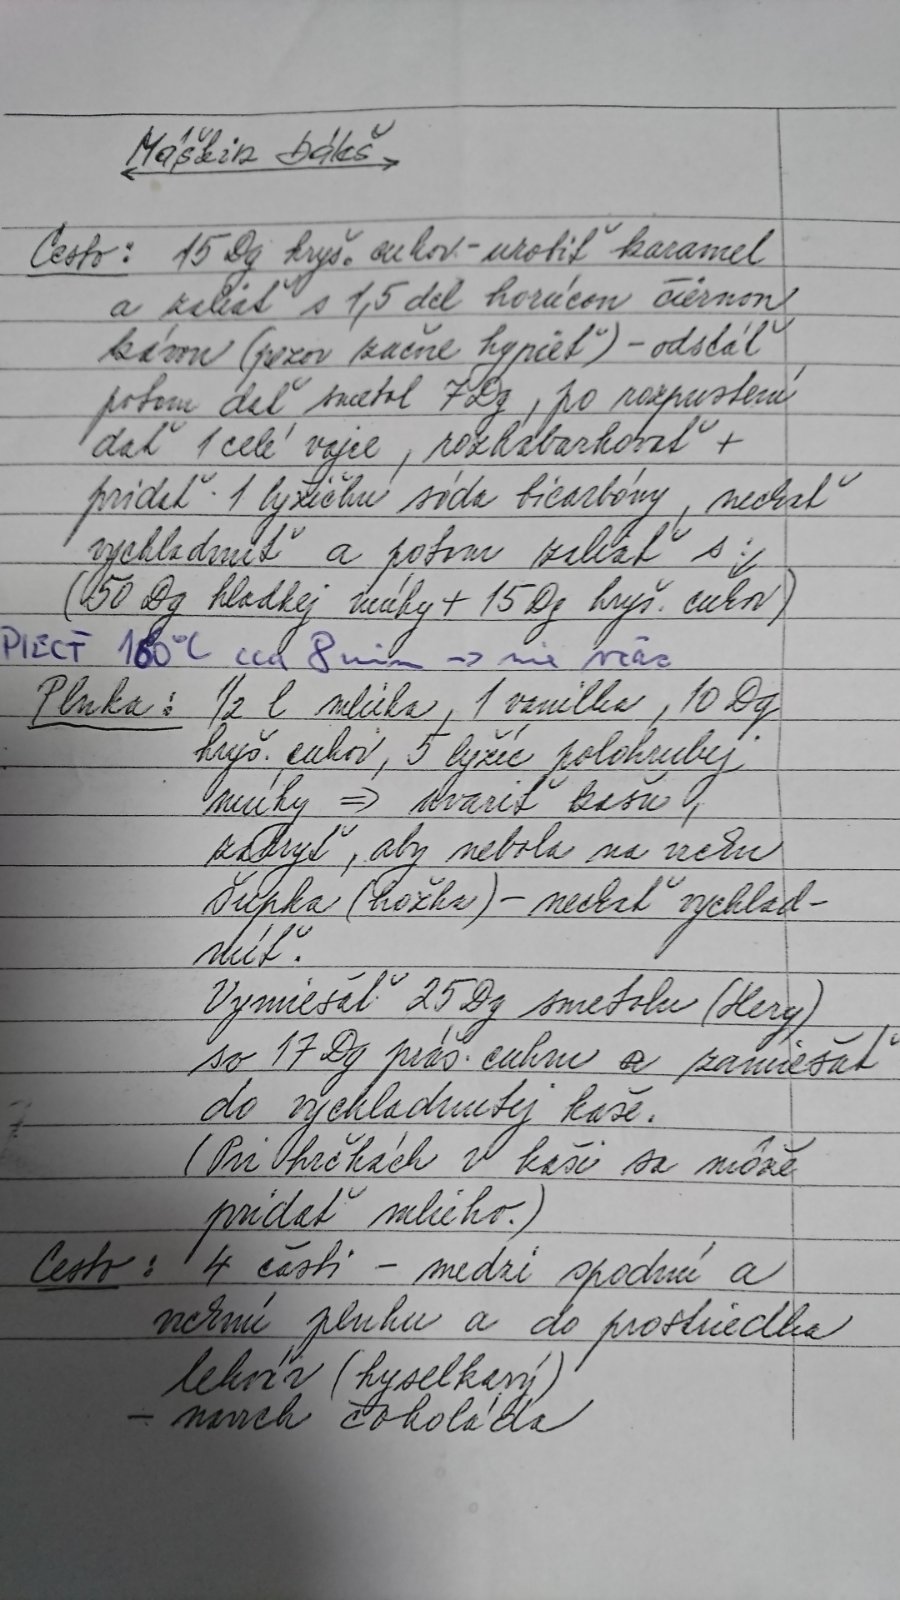 Máškin
Cesto: 15 Dg kryš. cukor - urobiť karamel
a zaliať s 1,5 del horúcou čiérnou
kávou (pozor začne kypieť) - odstáť
potom dať smetol 7 Dg, po rozpustení
dať 1 celé vajce, rozhabarkovať +
pridať 1 lyžičku sóda bicarbóny, nechať
vychladnúť a potom zaliať s: ↓
(50 Dg hladkej múky + 15 Dg kryš. cukor)
PIECŤ °C cca 8 min -> nie viac
Plnka: 1/2 l mlieka, 1 vanilka, 10 Dg
kryš. cukor, 5 lyžíc polohrubej
múky => uvariť kašu,
zakryť, aby nebola na vrchu
šupka (kožka) - nechať vychlad-
núť.
Vymiešať 25 Dg smetolu (Hery)
so 17 Dg práš. cukru a zamiešať
do vychladnutej kaše.
(Pri hrčkách v kaši sa môže
pridať mlieko.)
Cesto: 4 časti - medzi spodnú a
vrchnú plnku a do prostriedka
lekvár (kyselkavý)
- navrch čokoláda